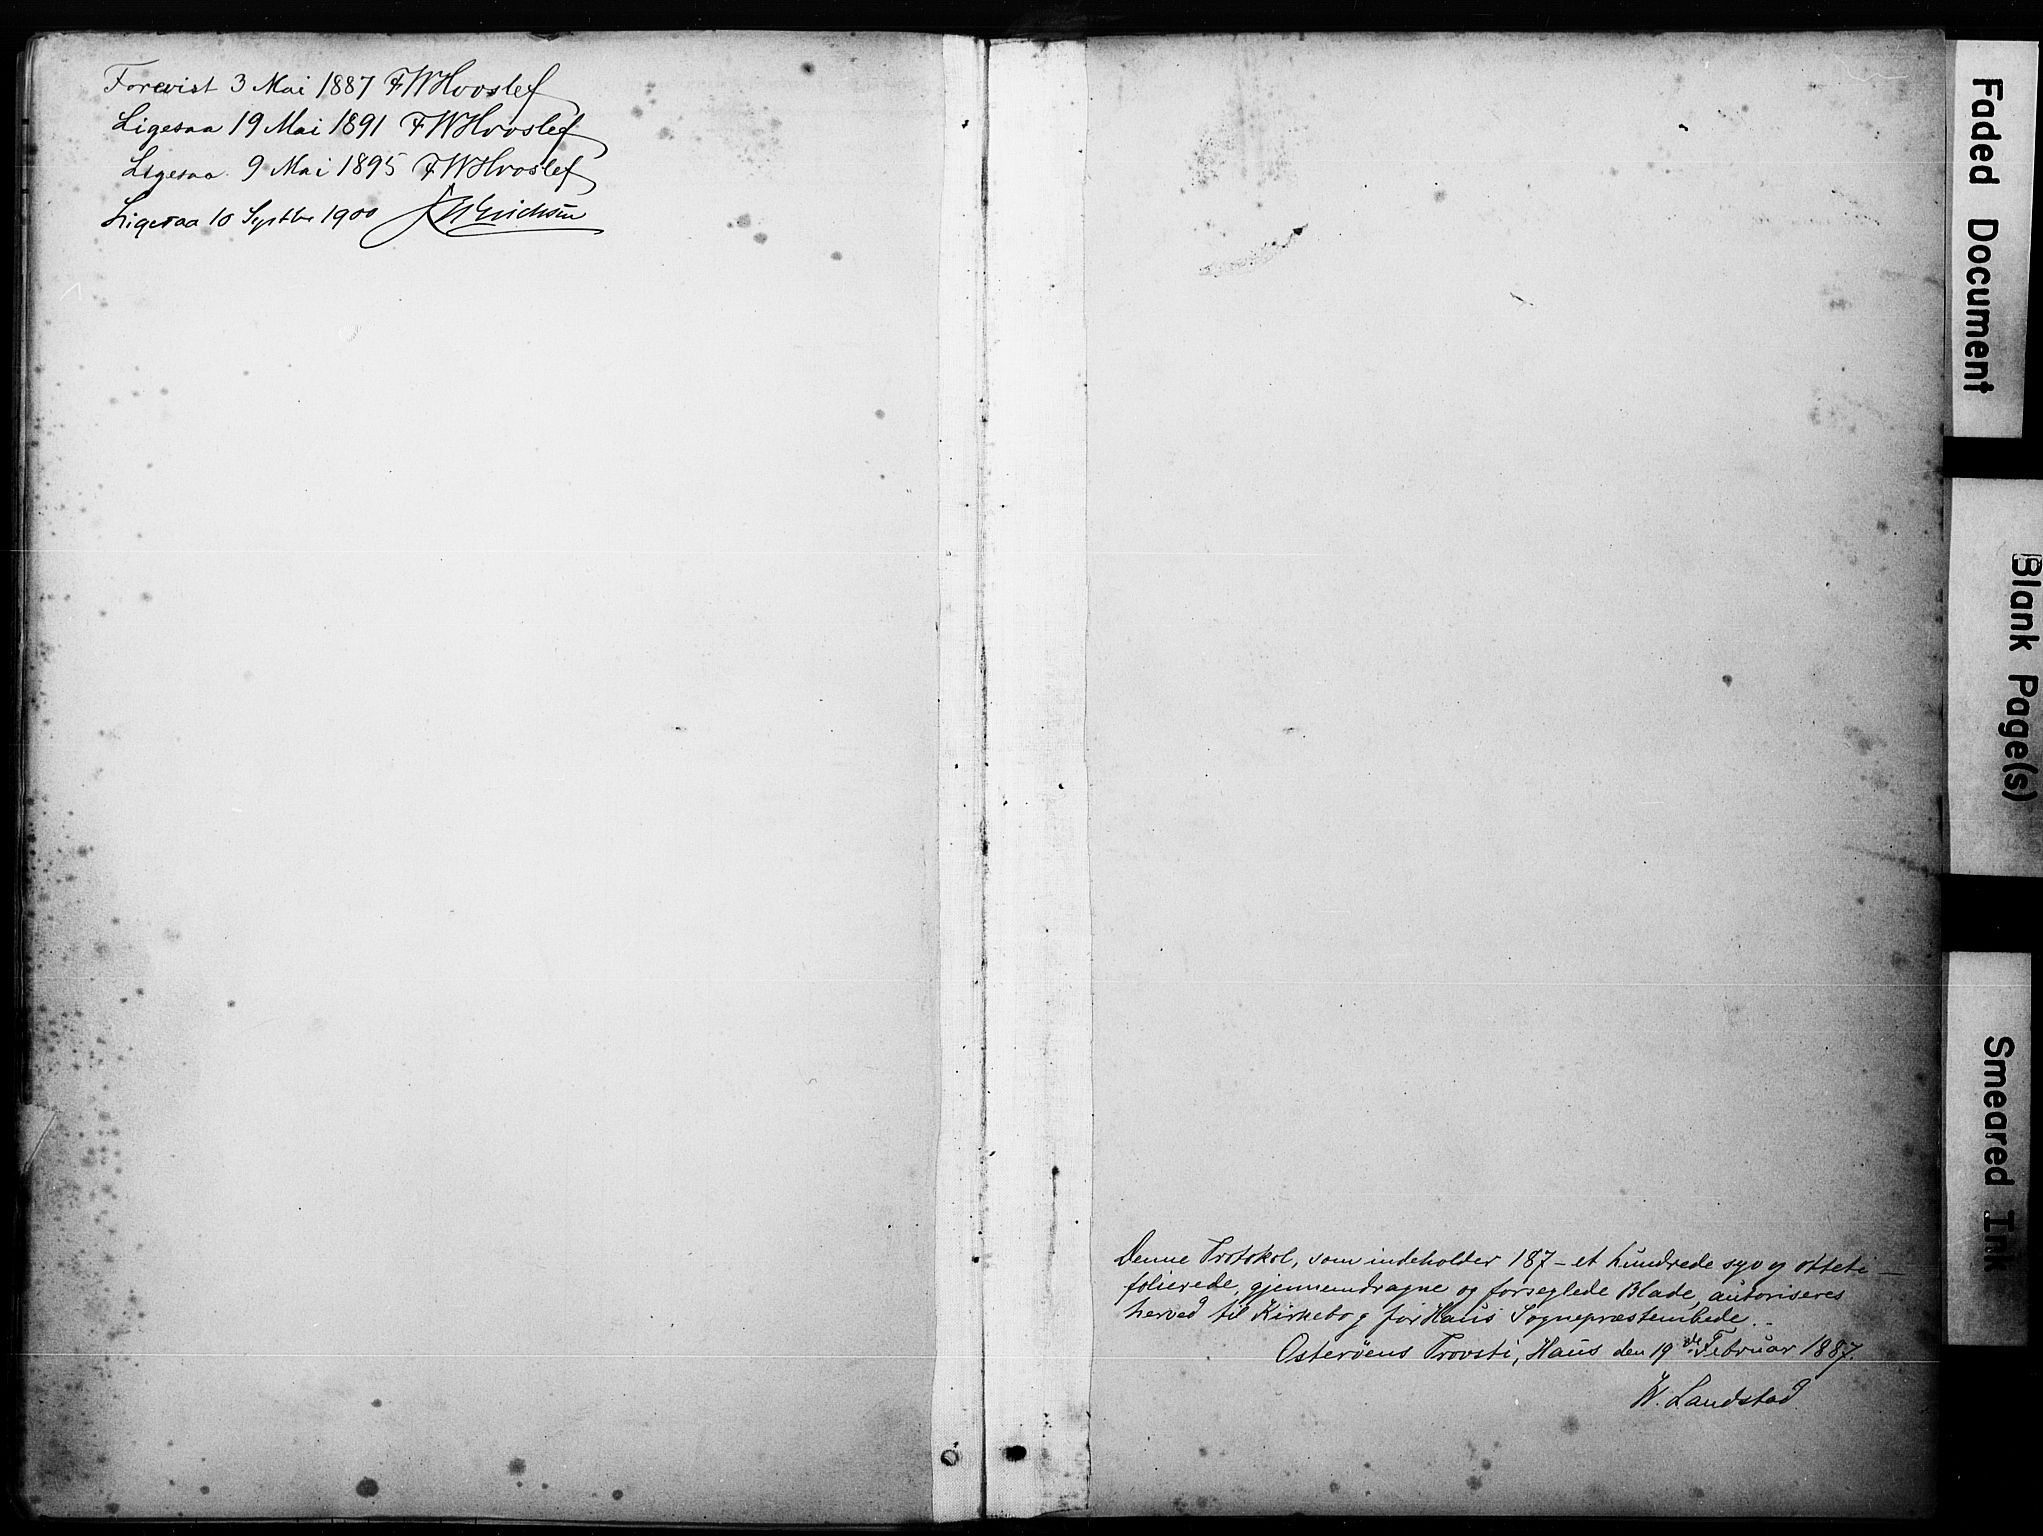 Forevist 3 Mai 1887 FWHvoslef
Ligesaa 19 Mai 1891 FWHvoslef
Ligesaa 9 Mai 1895 FWHvoslef
Ligesaa 10 Septbr 1900
Denne Protokol, som indeholder 187 – et hundrede syv og otteti –
folierede, gjennemdragne og forseglede Blade, autoriseres
herved til Kirkebog for Haus Sognepræstembede.
Osterøens Provsti, Haus den 19de Februar 1887.
W. Landstad
Faded Document
Blank Page(s)
Smeared Ink